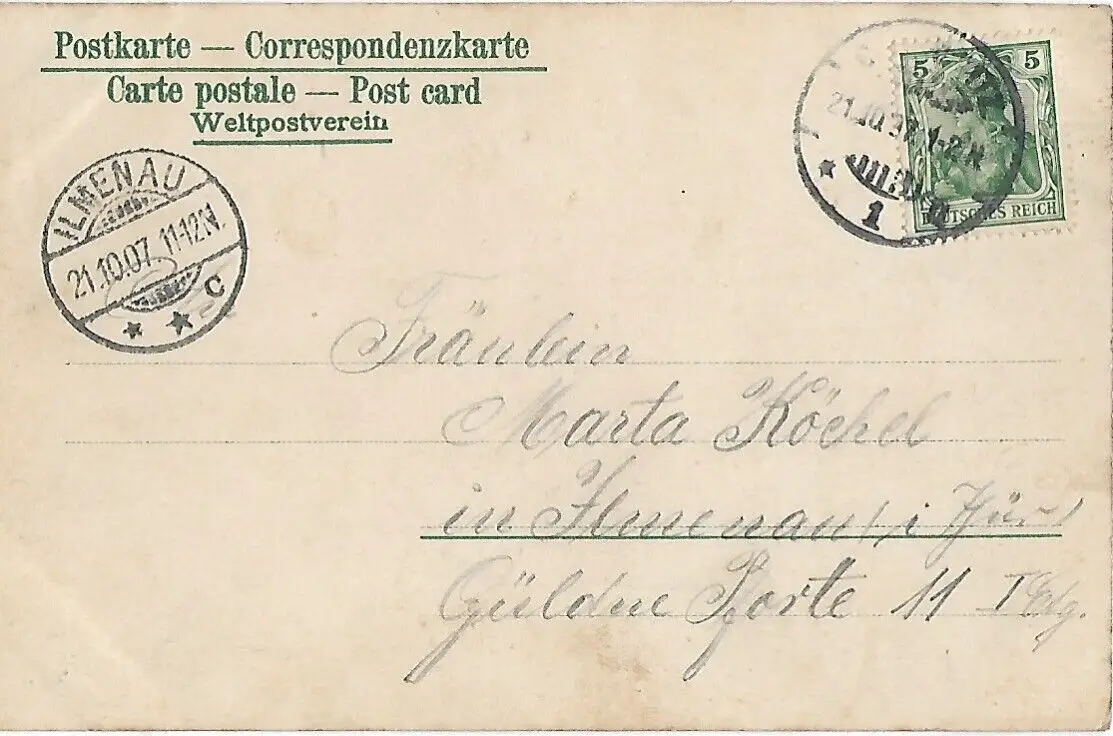 Postkarte — Correspondenzkarte
Carte postale — Post card
Weltpostverein
5 5
DEUTSCHES REICH
21.10.07. 1-2 N
1
ILMENAU
21.10.07. 11-12 N.
* * C
Fräulein
Marta Köchel
in Ilmenau (i Thür)
Güldne Pforte 11 I Etg.